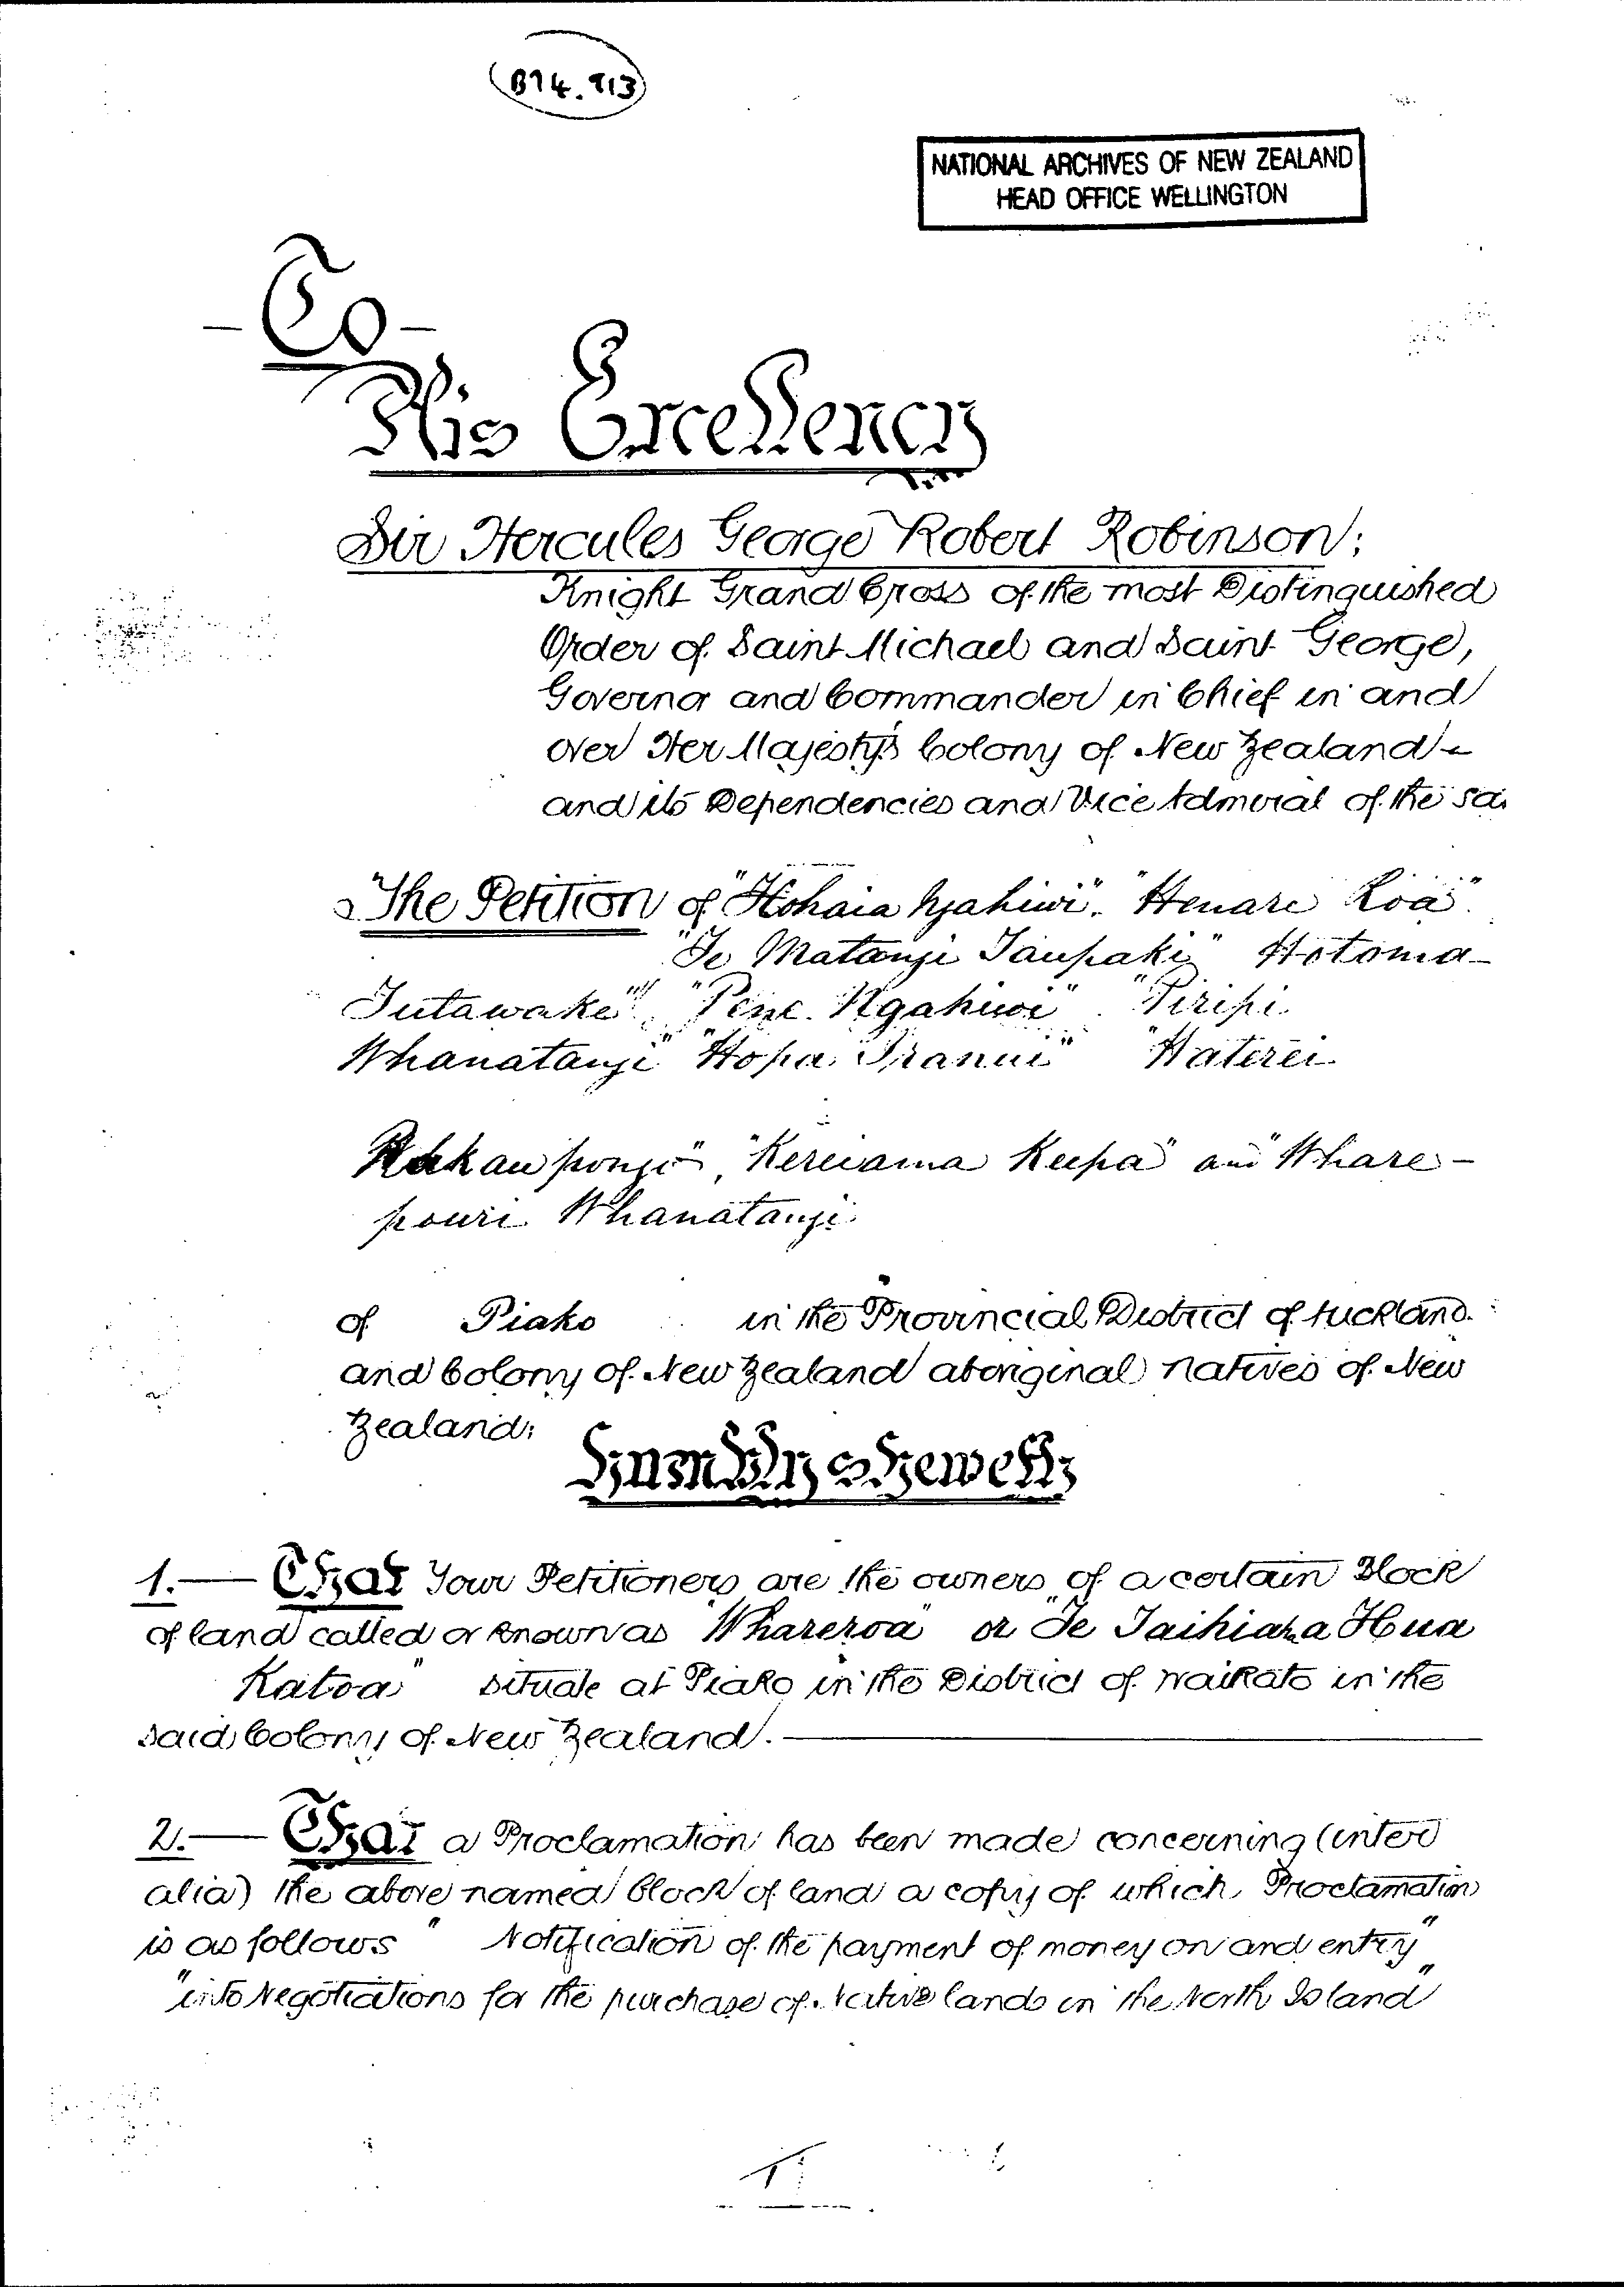 B74.913
NATIONAL ARCHIVES OF NEW ZEALAND
HEAD OFFICE WELLINGTON
- To -
His Excellency
Sir Hercules George Robert Robinson;
Knight Grand Cross of the most Distinguished
Order of Saint Michael and Saint George,
Governor and Commander in Chief in and
over Her Majesty's Colony of New Zealand
and its Dependencies and Vice Admiral of the
The Petition of "Hohaia Ngahiwi". "Henare Roa".
"Te Matangi Taupaki" Hotoma-
Tutawake", "Pene Ngahiwi". "Piripi
Whanatangi" "Hopa Tranui" "Haterei
"Kereiama Keepa" and "Whare-
pouri Whanatangi
of Piako in the Provincial District of Auckland
and Colony of New Zealand aboriginal natives of New
Zealand:
Humbly Sheweth
1.— That Your Petitioners are the owners of a certain Block
of land called or known as "Whareroa" or "Te Taihiaha Hua
Katoa" situate at Piako in the District of Waikato in the
said Colony of New Zealand.
2.— That a Proclamation has been made concerning (inter
alia) the above named block of land a copy of which Proclamation
is as follows " Notification of the payment of money on and entry"
"into Negotiations for the purchase of Native lands in the North Island"
1